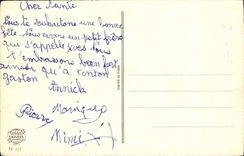 Cher Mamie
Nous te souhaitons une bonne
fête. Nous avons un petit frère
qui s'appelle Yves nous
t'embrassons bien fort
ainsi qu'a tonton
gaston
Annick
Monique
Pierre
Mimi